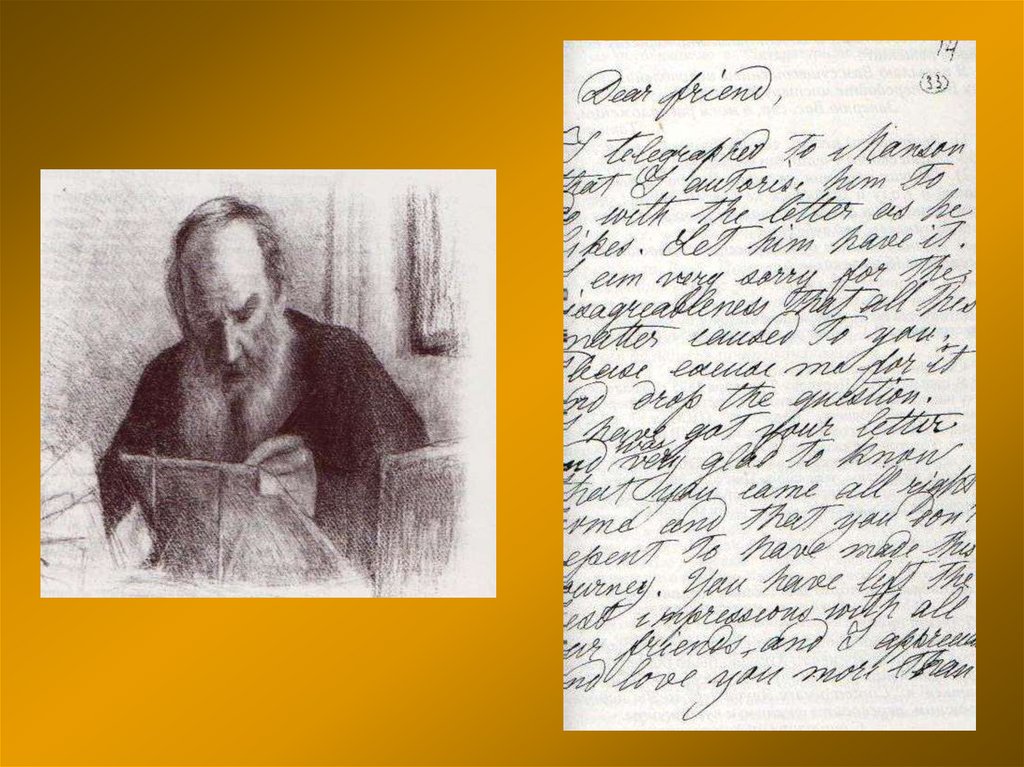 14
33
Dear friend,
I telegraphed to Manson
that I autoris. him to
do with the letter as he
likes. Let him have it.
I am very sorry for the
disagreableness that all this
matter caused to you.
Please excuse me for it
and drop the question.
I have got your letter
was
and very glad to know
that you came all right
home and that you don't
repent to have made this
journey. You have left the
best impressions with all
our friends, and I
and love you more than